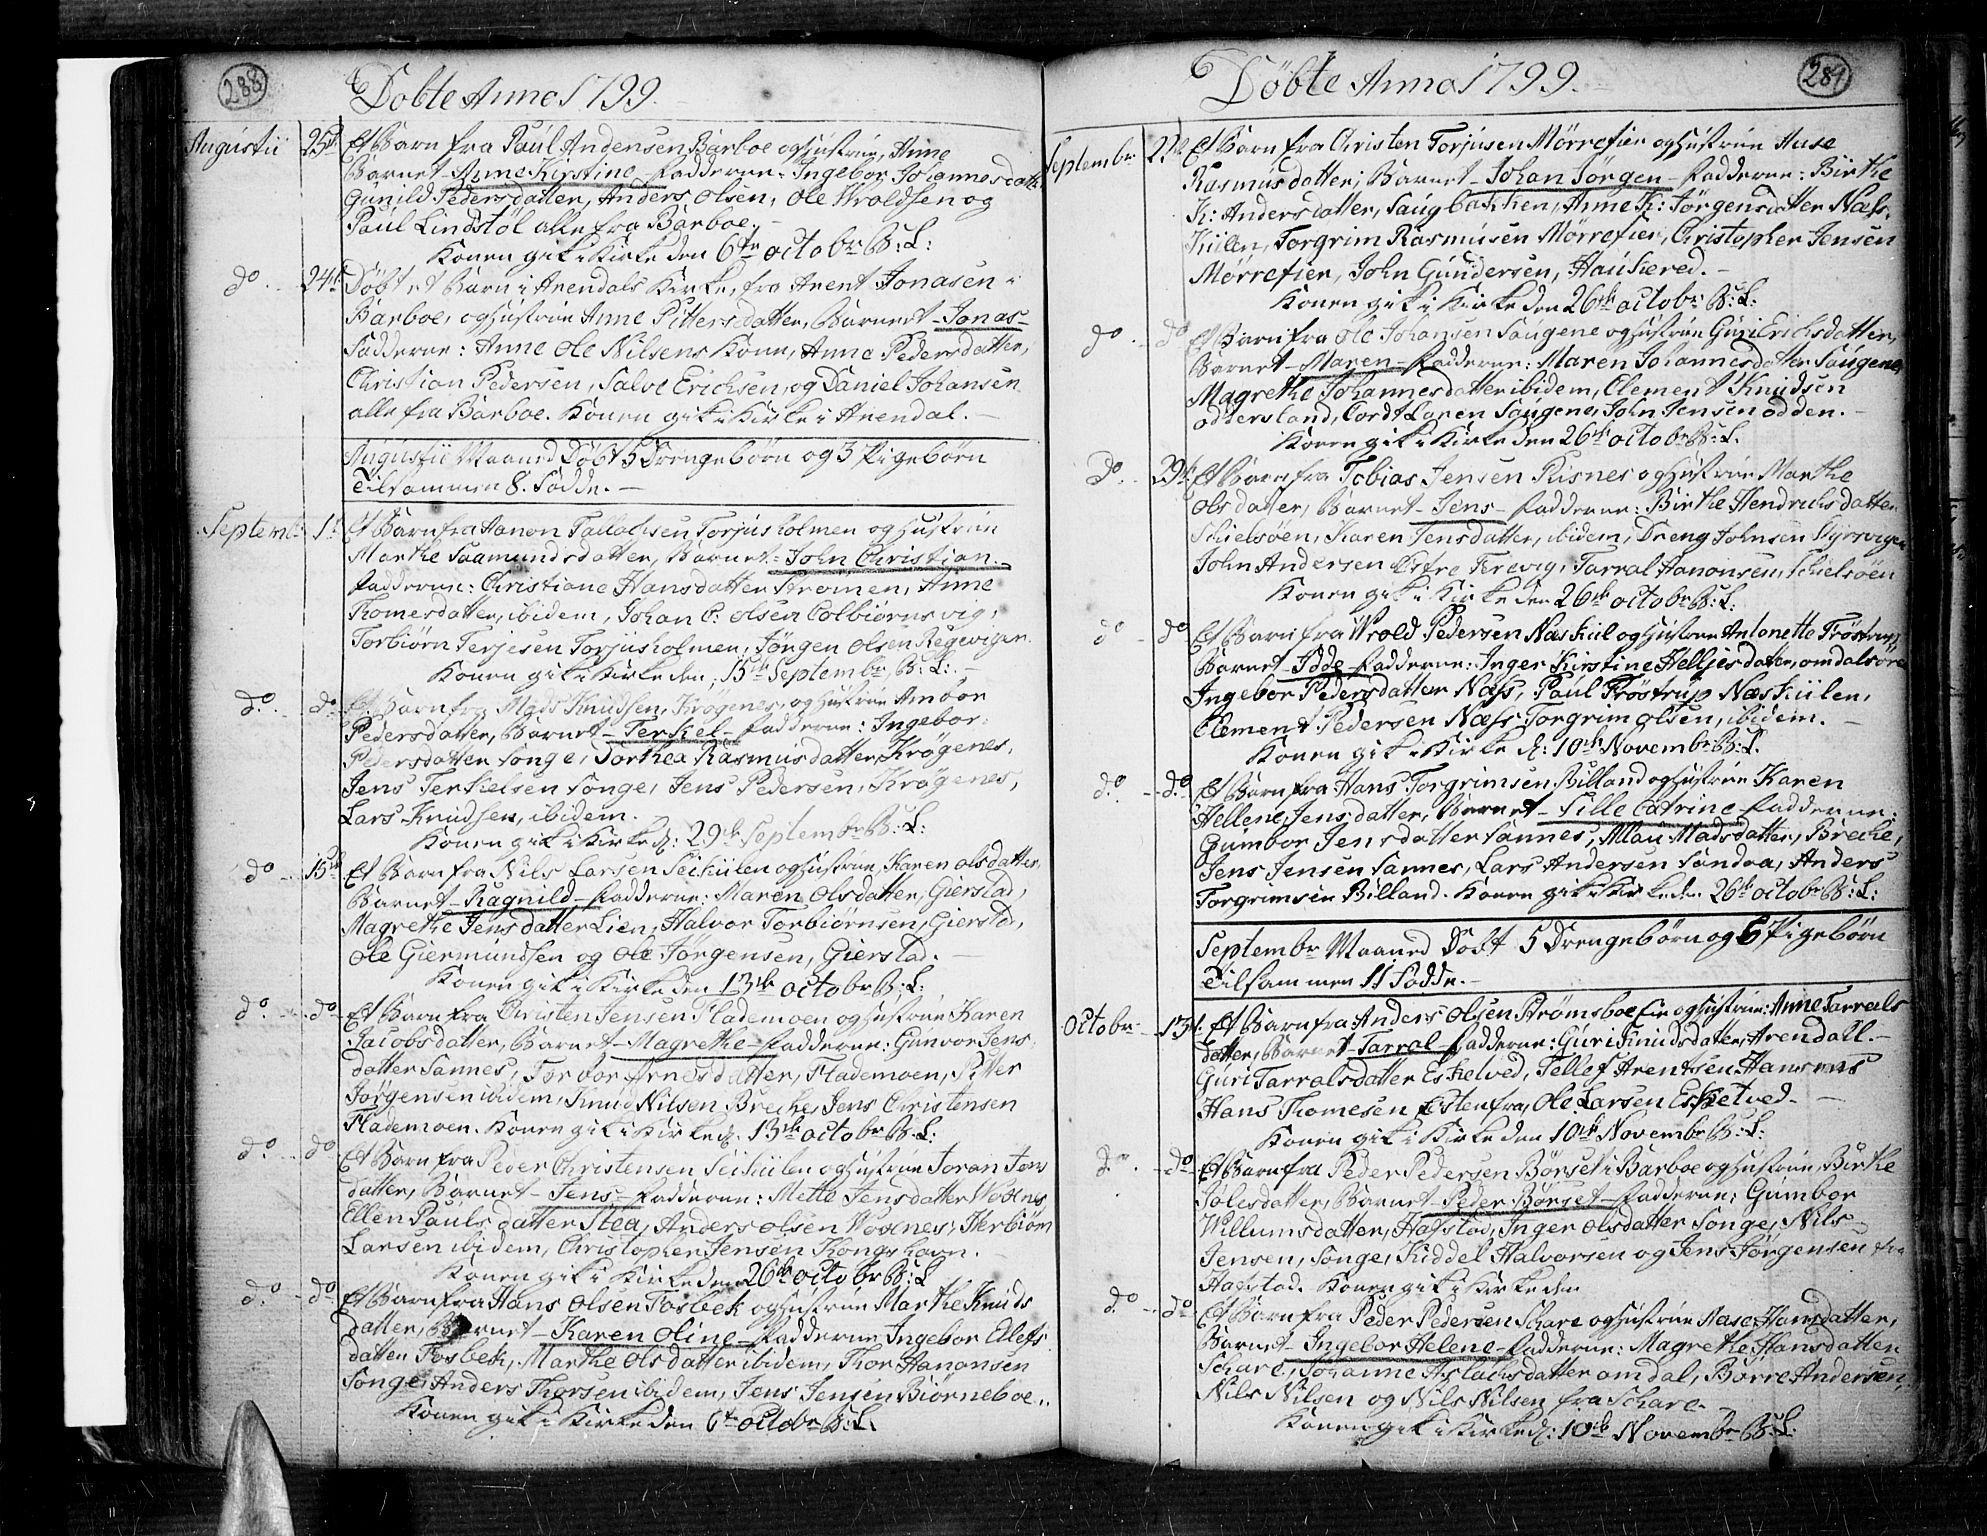 288
Döbte Anno 1799.
Augustii 25de Et Barn fra Paul Andensen Barboe og Hustrüe, Anne
Barnet - Anne Kirstine - Fadderne: Ingebor Johannesdatter
Gunild Pedersdatter, Anders Olsen, Ole Wroldsen og
Paul Lindstöl alle fra Barboe. -
Konen gik i Kirke den 6te octobr B: L:
do. 24de Döbt et Barn i Arendals Kirke, fra Arent Jonasen i
Barboe, og Hustrüe Anne Pittersdatter, Barnet - Jonas -
Fadderne: Anne Ole Nilsens Kone, Anne Pedersdatter,
Christian Pedersen, Salve Erichsen, og Daniel Johansen
alle fra Barboe. Konen gik i Kirke i Arendal. -
Augustii Maaned Döbt 5 Drengebörn og 3 Pigebörn
Tilsammen 8. Födde. -
Septembr 1te Et Barn fra Hanon Tallachsen Torjusholmen og Hustrüe
Marthe Saamundsdatter, Barnet - John Christian. -
Fadderne: Christiane Hansdatter Strömen, Anne
Thomesdatter, ibidem, Johan C: Olsen Colbiörnsvig,
Torbiörn Terjesen Torjusholmen, Jörgen Olsen Regevigen.
Konen gik i Kirke den, 15de Septembr, B: L: -
do. do. Et Barn fra Mads Knudsen, Krögenes, og Hustrüe Anbor
Pedersdatter, Barnet - Terkel - Fadderne: Ingebor
Pedersdatter Songe, Torthea Rasmusdatter, Krögenes,
Jens Terkelsen Songe, Jens Pedersen, Krögenes,
Lars Knudsen, ibidem.
Konen gik i Kirke d: 29de Septembr B: L:
do 15de Et Barn fra Nils Larsen Seikiilen og Hustrüe, Karen Olsdatter,
Barnet - Ragnild - Fadderne: Maren Olsdatter, Gierstad,
Magrethe Jensdatter Lien, Halvor Torbiörnsen, Gierstad,
Ole Giermundsen og Ole Jörgensen, Gierstad. -
Konen gik i Kirke den 13de octobr B: L:
do. do. Et Barn fra Christen Jensen Flademoen og Hustrüe Karen
Jacobsdatter, Barnet - Magrethe - Fadderne: Gunvor Jens
datter Sannes, Torbor Arnesdatter, Flademoen, Pitter
Jörgensen ibidem, Knud Nilsen Breche, Jens Christensen
Flademoen. Konen gik i Kirke d: 13de octobr B. L:
do. do. Et Barn fra Peder Christensen Seikiilen og Hustrüe Joran Jens
datter, Barnet - Jens - Fadderne: Mette Jensdatter Woxnes
Ellen Paulsdatter Stea, Anders Olsen Woxnes, Herbiörn
Larsen ibidem, Christopher Jensen Kongshavn.
Konen gik i Kirke den 26de octobr B: L
do. do. Et Barn fra Hans Olsen Fosbek og Hustrüe Marthe Knuds
datter, Barnet - Karen Oline - Fadderne Ingebor Ellefs
datter Fosbek, Marthe Olsdatter ibidem, Thor Hanonsen
Songe, Anders Thorsen ibidem, Jens Jensen Biörneboe..
Konen gik i Kirke den 6te octobr B: L.
289
Döbte Anno 1799.
Septembr 22de Et Barn fra Christen Torjusen Mörrefier og Hustrüe Aase
Rasmusdatter; Barnet - Johan Jörgen - Fadderne: Birthe
K: Andersdatter, Saugbakken, Anne K: Jörgensdatter Næss
Kiilen, Torgrim Rasmusen Mörrefier, Christopher Jensen
Mörrefier, John Gundersen, Haukered. -
Konen gik i Kirke den 26de octobr: B: L:
do. do. Et Barn fra Ole Johansen Saugene og Hustrüe Guri Erichsdatter,
Barnet - Maren - Fadderne: Maren Johannesdatter Saugene,
Magrethe Johannesdatter ibidem, Clement Knudsen
Oddersland, Cordt Laren Saugene, John Jensen Odden. -
Konen gik i Kirke den 26de octobr B: L.
do. 29de Et Barn fra Tobias Jensen Kusnes og Hustrüe Marthe
Olsdatter, Barnet - Jens - Fadderne: Birthe Hendrichsdatter
Schielsöen, Karen Jensdatter, ibidem, Dreng Johnsen Dyrsvigen
John Andersen Östre Krevig, Tarral Hanonsen, Schielsöen
Konen gik i Kirke den 26de octobr B: L:
do - do. Et Barn fra Wrold Pedersen Næskiil og Hustrüe Antonette Tröstrup,
Barnet - Idde - Fadderne: Inger Kirstine Helljesdatter, omdalsöre
Ingebor Pedersdatter Næss, Paul Tröstrup Næskiilen,
Clement Pedersen Næss, Torgrim Olsen, ibidem. -
Konen gik i Kirke d: 10de Novembr B: L.
do. - do. Et Barn fra Hans Torgrimsen Billand og Hustrüe Karen
Hellene Jensdatter, Barnet - Sille Catrine - Fadderne:
Gumbor Jensdatter Sannes, Allau Madsdatter, Breche,
Jens Jensen Sannes, Lars Andersen Sandaa, Anders
Torgrimsen Billand. Konen gik i Kirke den 26de octobr B: L:
Septembr Maaned Döbt 5 Drengebörn og 6 Pigebörn
Tilsammen 11 Födde. -
Octobr - 13de: Et Barn fra Anders Olsen Strömsboe Eie og Hustrüe: Anne Tarrals
datter, Barnet - Tarral - Fadderne: Guri Knudsdatter, Arendall. -
Guri Tarralsdatter Eskelved, Tellef Arentsen Hansnæs
Hans Thomesen Östenfra, Ole Larsen Eskelved. -
Konen gik i Kirke den 10de Novembr B: L:
do. - do Et Barn fra Peder Pedersen Börset i Barboe og Hustrüe Birthe
Jolesdatter, Barnet - Peder Börset - Fadderne: Gumbor
Willumsdatter, Hafstad, Inger Olsdatter Songe, Nils
Jensen, Songe, Siddel Halvorsen og Jens Jörgensen fra
Hafstad. Konen gik i Kirke den
do. - do Et Barn fra Peder Pedersen Schare og Hustrüe Aase Hansdatter,
Barnet - Ingebor Helene - Fadderne: Magrethe Hansdatter
Schare, Johanne Aslachsdatter omdal, Börre Andersen,
Nils Nilsen og Nils Nilsen fra Schare. -
Konen gik i Kirke d: 10de Novembr B: L: